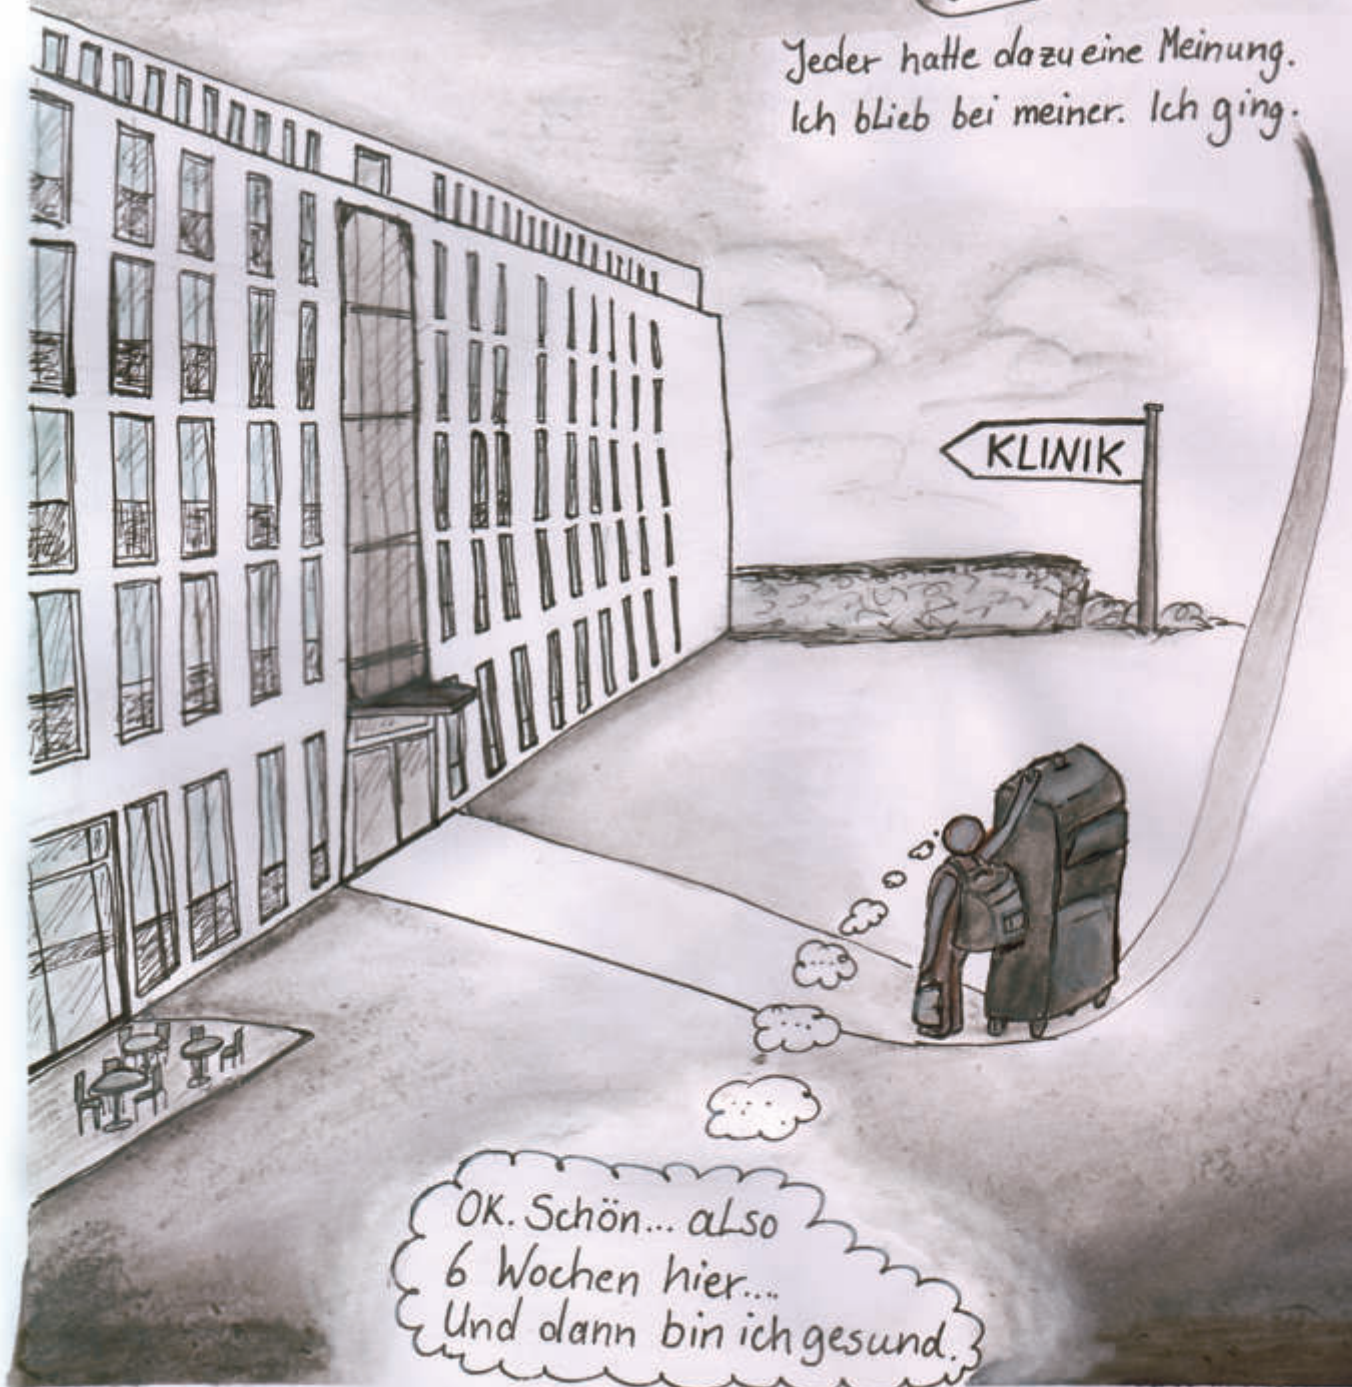 Jeder hatte dazu eine Meinung.
Ich blieb bei meiner. Ich ging.
KLINIK
OK. Schön... also
6 Wochen hier....
Und dann bin ich gesund.